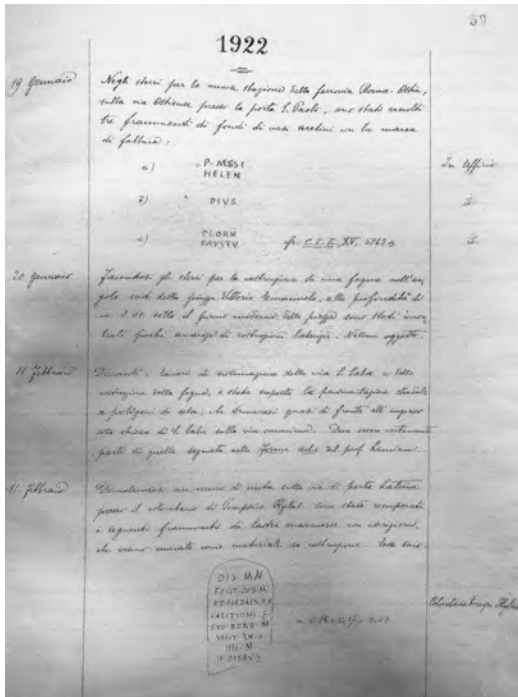 59
1922
19 Gennaio
Negli sterri per la nuova stazione della ferrovia Roma-Ostia,
sulla via Ostiense presso la porta S. Paolo, sono stati raccolti
tre frammenti di fondi di vasi aretini con la marca
di fabbrica:
a) P. MESI
HELEN
In Ufficio
DIVE
c) CLORN
FAVSTV
cfr. C.I.L. XV.
20 Gennaio
Facendosi gli sterri per la costruzione di una fogna nell'an-
golo sud della piazza Vittorio Emanuele, alla profondità di
m. 3.00 sotto il piano moderno della piazza sono stati incon-
trati pochi avanzi di costruzioni laterizie. Nessun oggetto.
11 Febbraio
Durante i lavori di sistemazione della via S. Saba e della
costruzione della fogna, è stata scoperta la pavimentazione stradale
a poligoni di selce, che trovavasi quasi di fronte all'ingresso
alla chiesa di S. Saba sulla via omonima. Deve essere certamente
parte di quella segnata nella Forma Urbis del prof. Lanciani
11 Febbraio
Demolendosi un muro di sulla via di porta Latina
presso il colombario di Pomponio Hylas sono stati recuperati
i seguenti frammenti di lastre marmoree con iscrizioni,
che erano murati come materiale da costruzione. Essi sono:
DIS MN
Colombario Pomp. Hylas